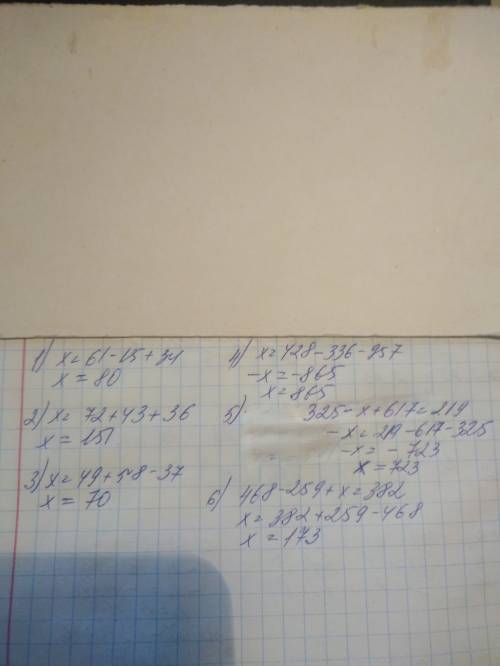 1) x=61-15+34
x=80
2) x= 72+43+36
x=151
3) x=49+58-37
x=70
4) x=428-336-957
-x=-865
x=865
5) 325-x+617=219
-x=219-617-325
-x=-723
x=723
6) 468-259+x=382
x=382+259-468
x=173